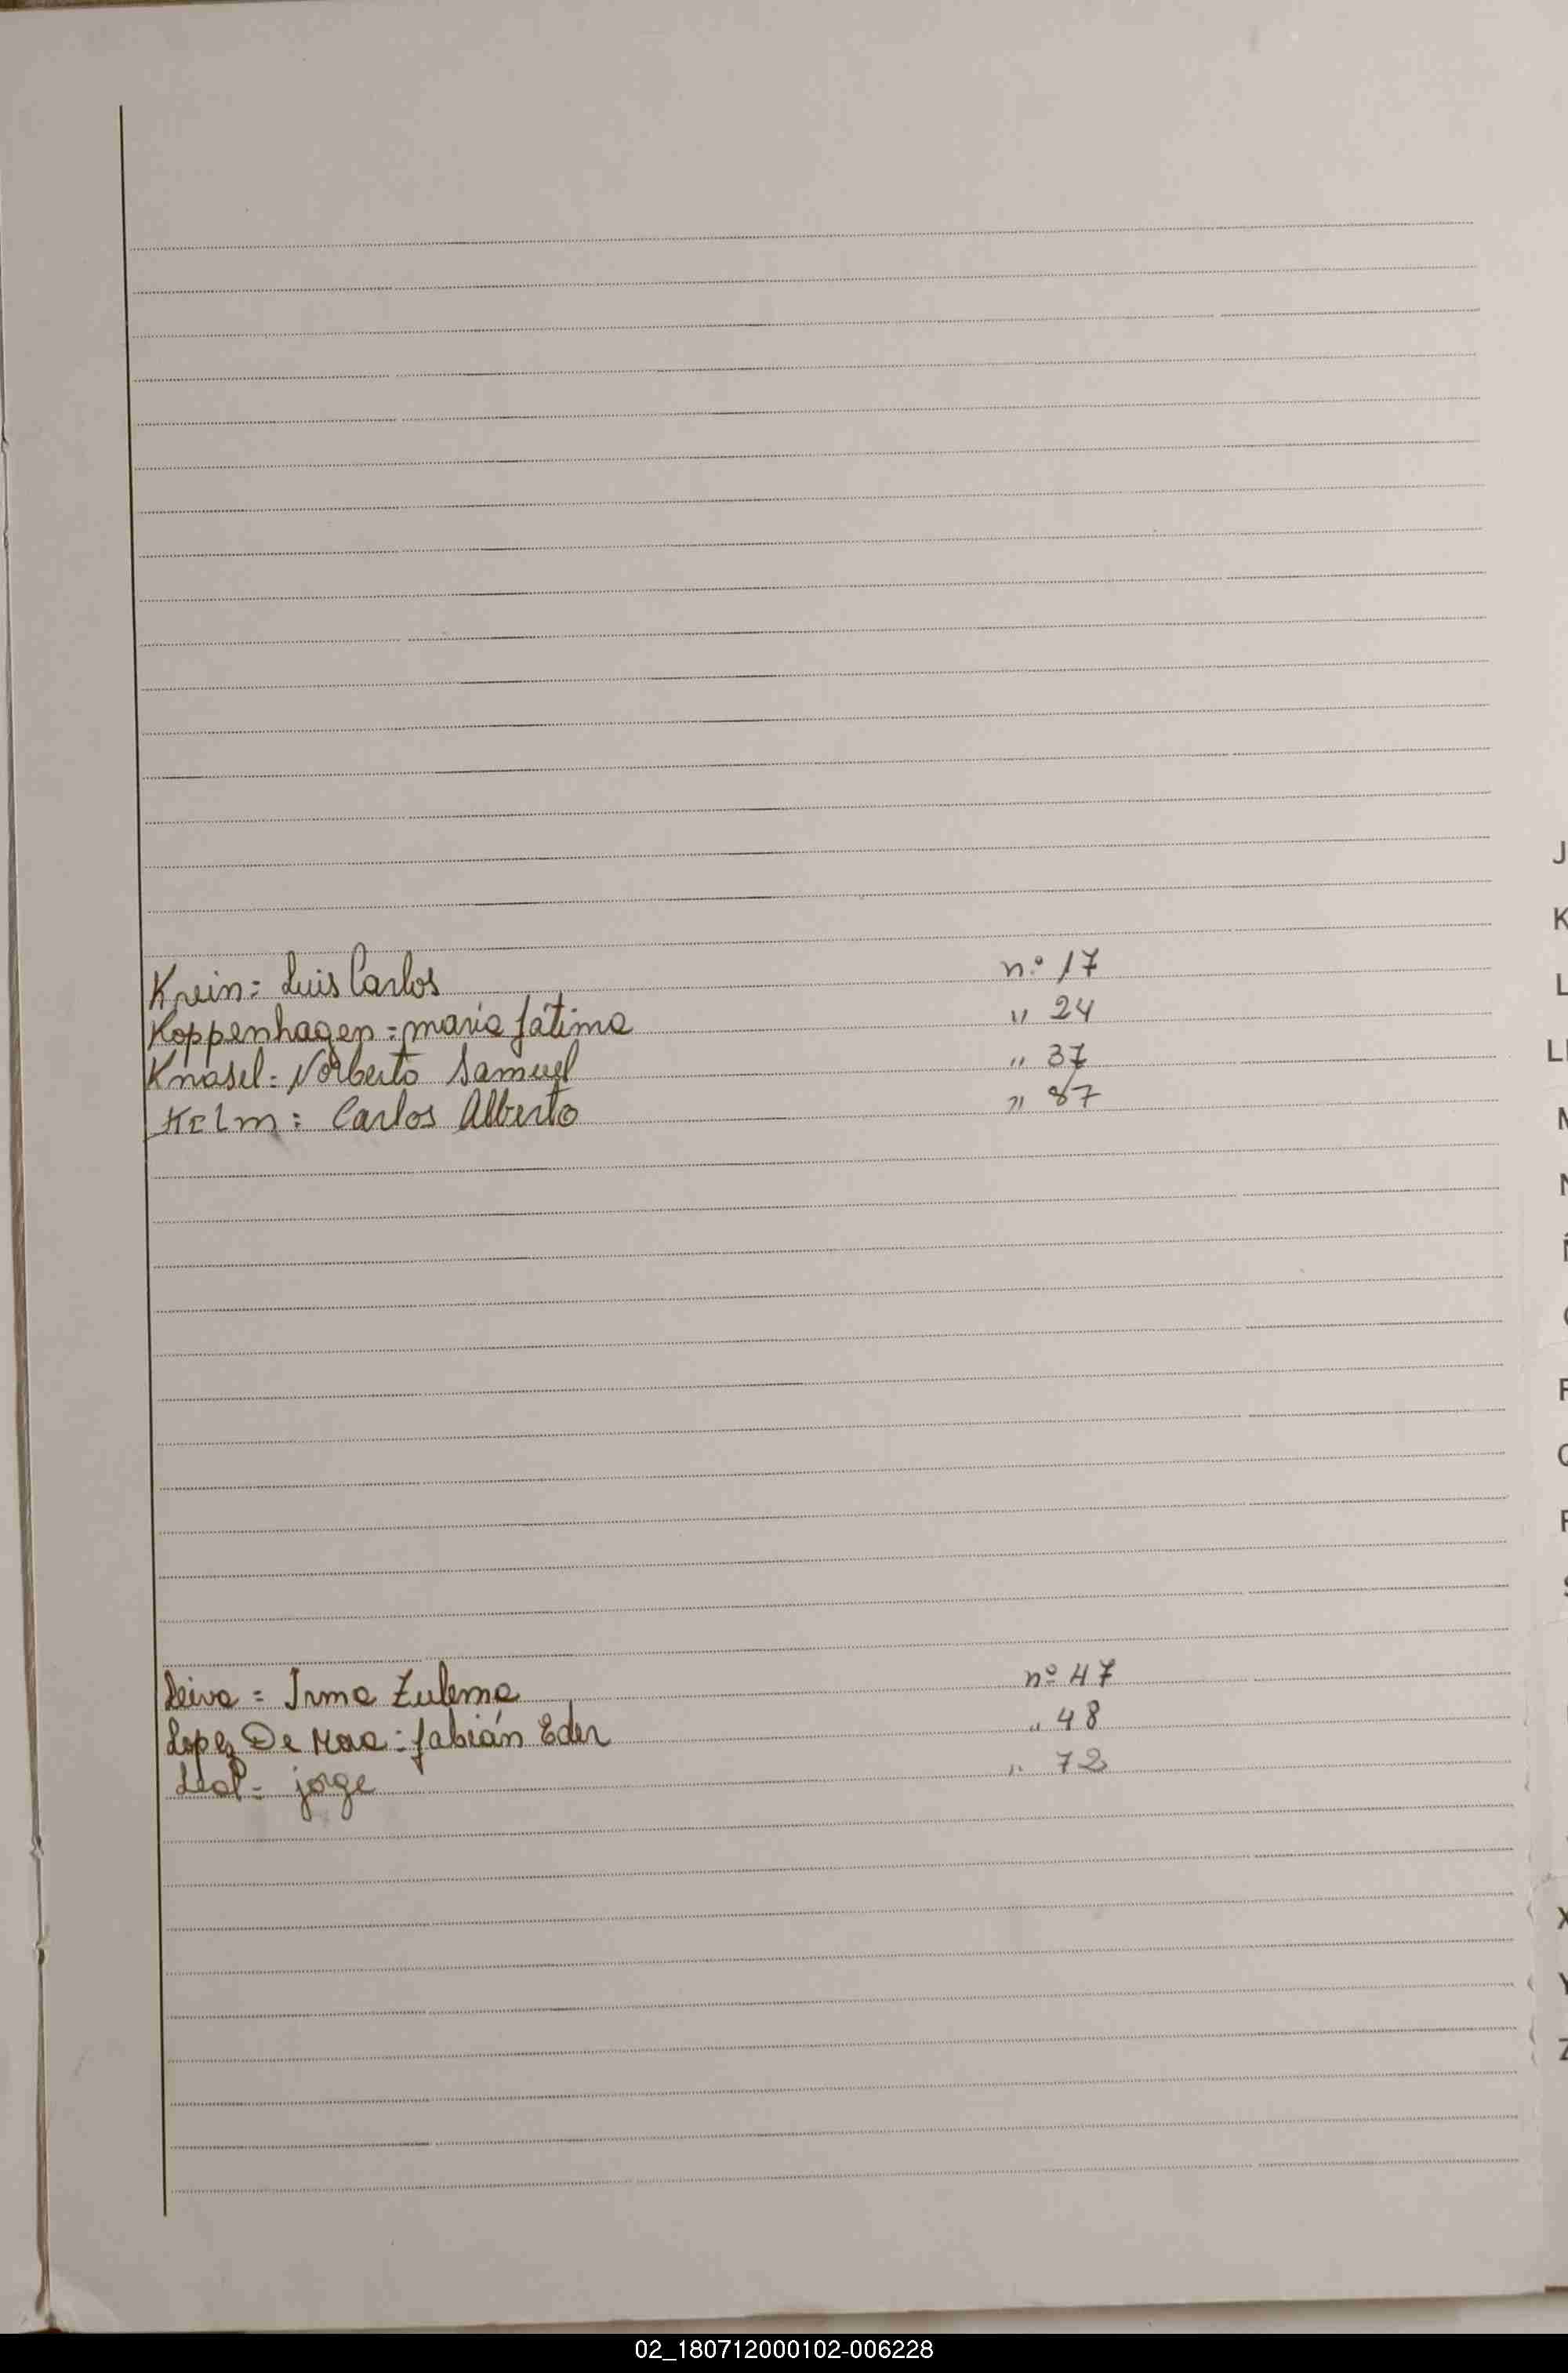 Krein = Luis Carlos n.º 17
Koppenhagen = maria fátima " 24
Knasel = Norberto Samuel " 37
Kelm : Carlos Alberto " 87
Leiva = Irma Zulema nº 47
Lopez De Mora = fabián Eder " 48
Leal = jorge " 72
J
K
L
LL
M
N
Q
S
X
Y
Z
02_180712000102-006228